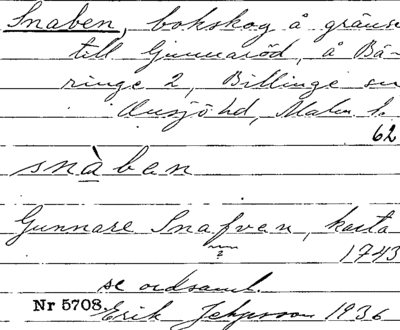 Snaben, bokskog å gräns
till Gunnaröd, å Bä-
ringe 2, Billinge sn
Onsjö hd, Malm. l.
62
snàban
Gunnare Snafven, karta
?
1743
se ordsaml.
Nr 5708 Erik Jeppsson 1936